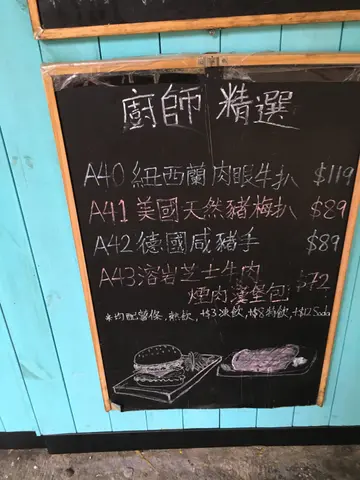 廚師 精選
A40 紐西蘭 肉眼牛扒 $119
A41 美國天然豬梅扒 $89
A42 德國咸豬手 $89
A43 溶岩芝士牛肉
煙肉漢堡包 $72
*均配薯條, 熱飲, +$3凍飲, +$8特飲, +$12 Soda